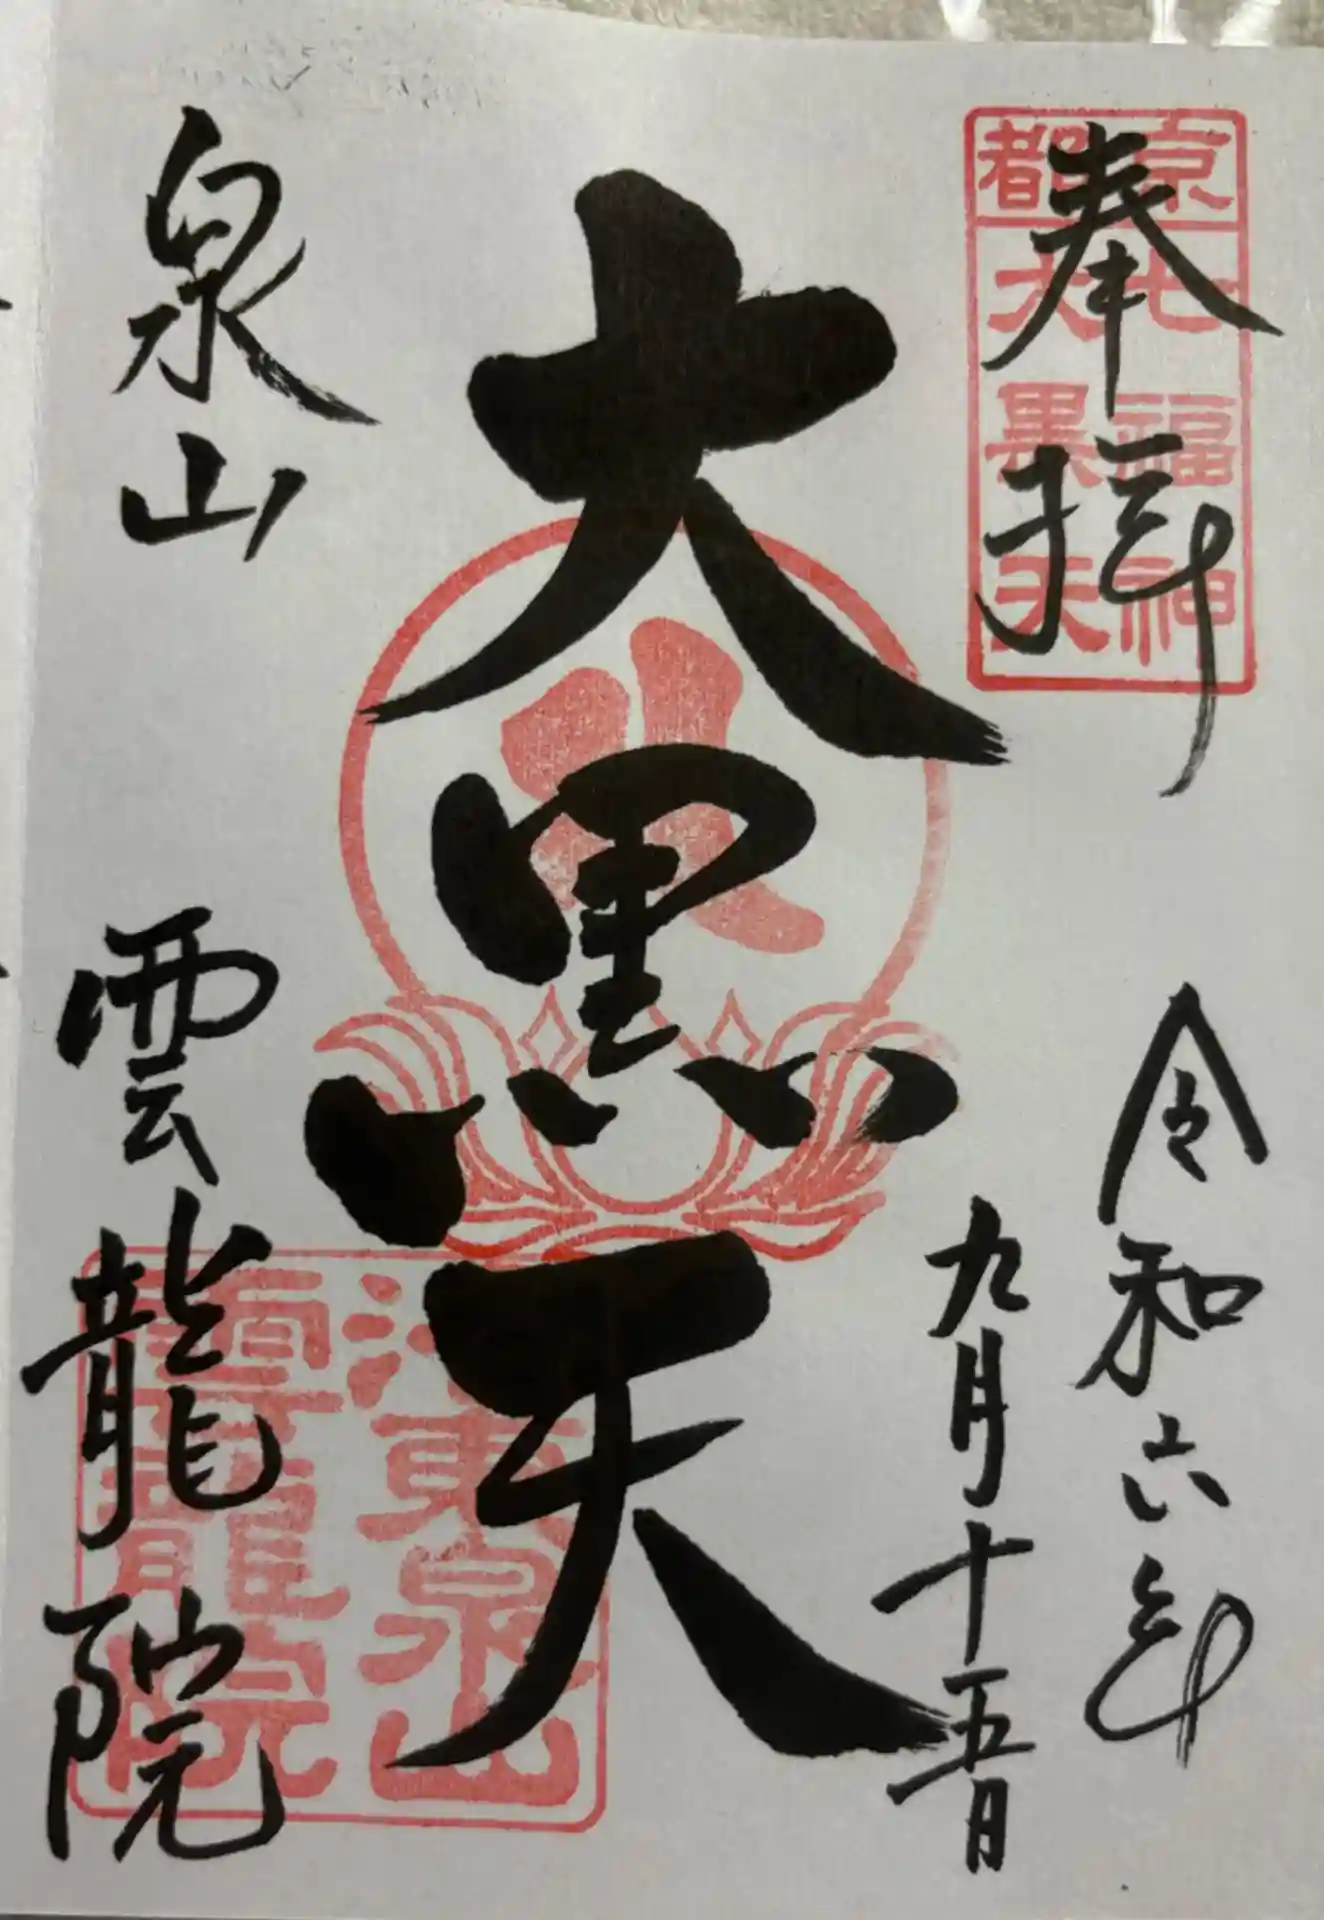 奉拝
京都
七福神
大黒天
令和六年
九月十五日
大黒天
泉山
雲龍院
東泉山
雲龍院